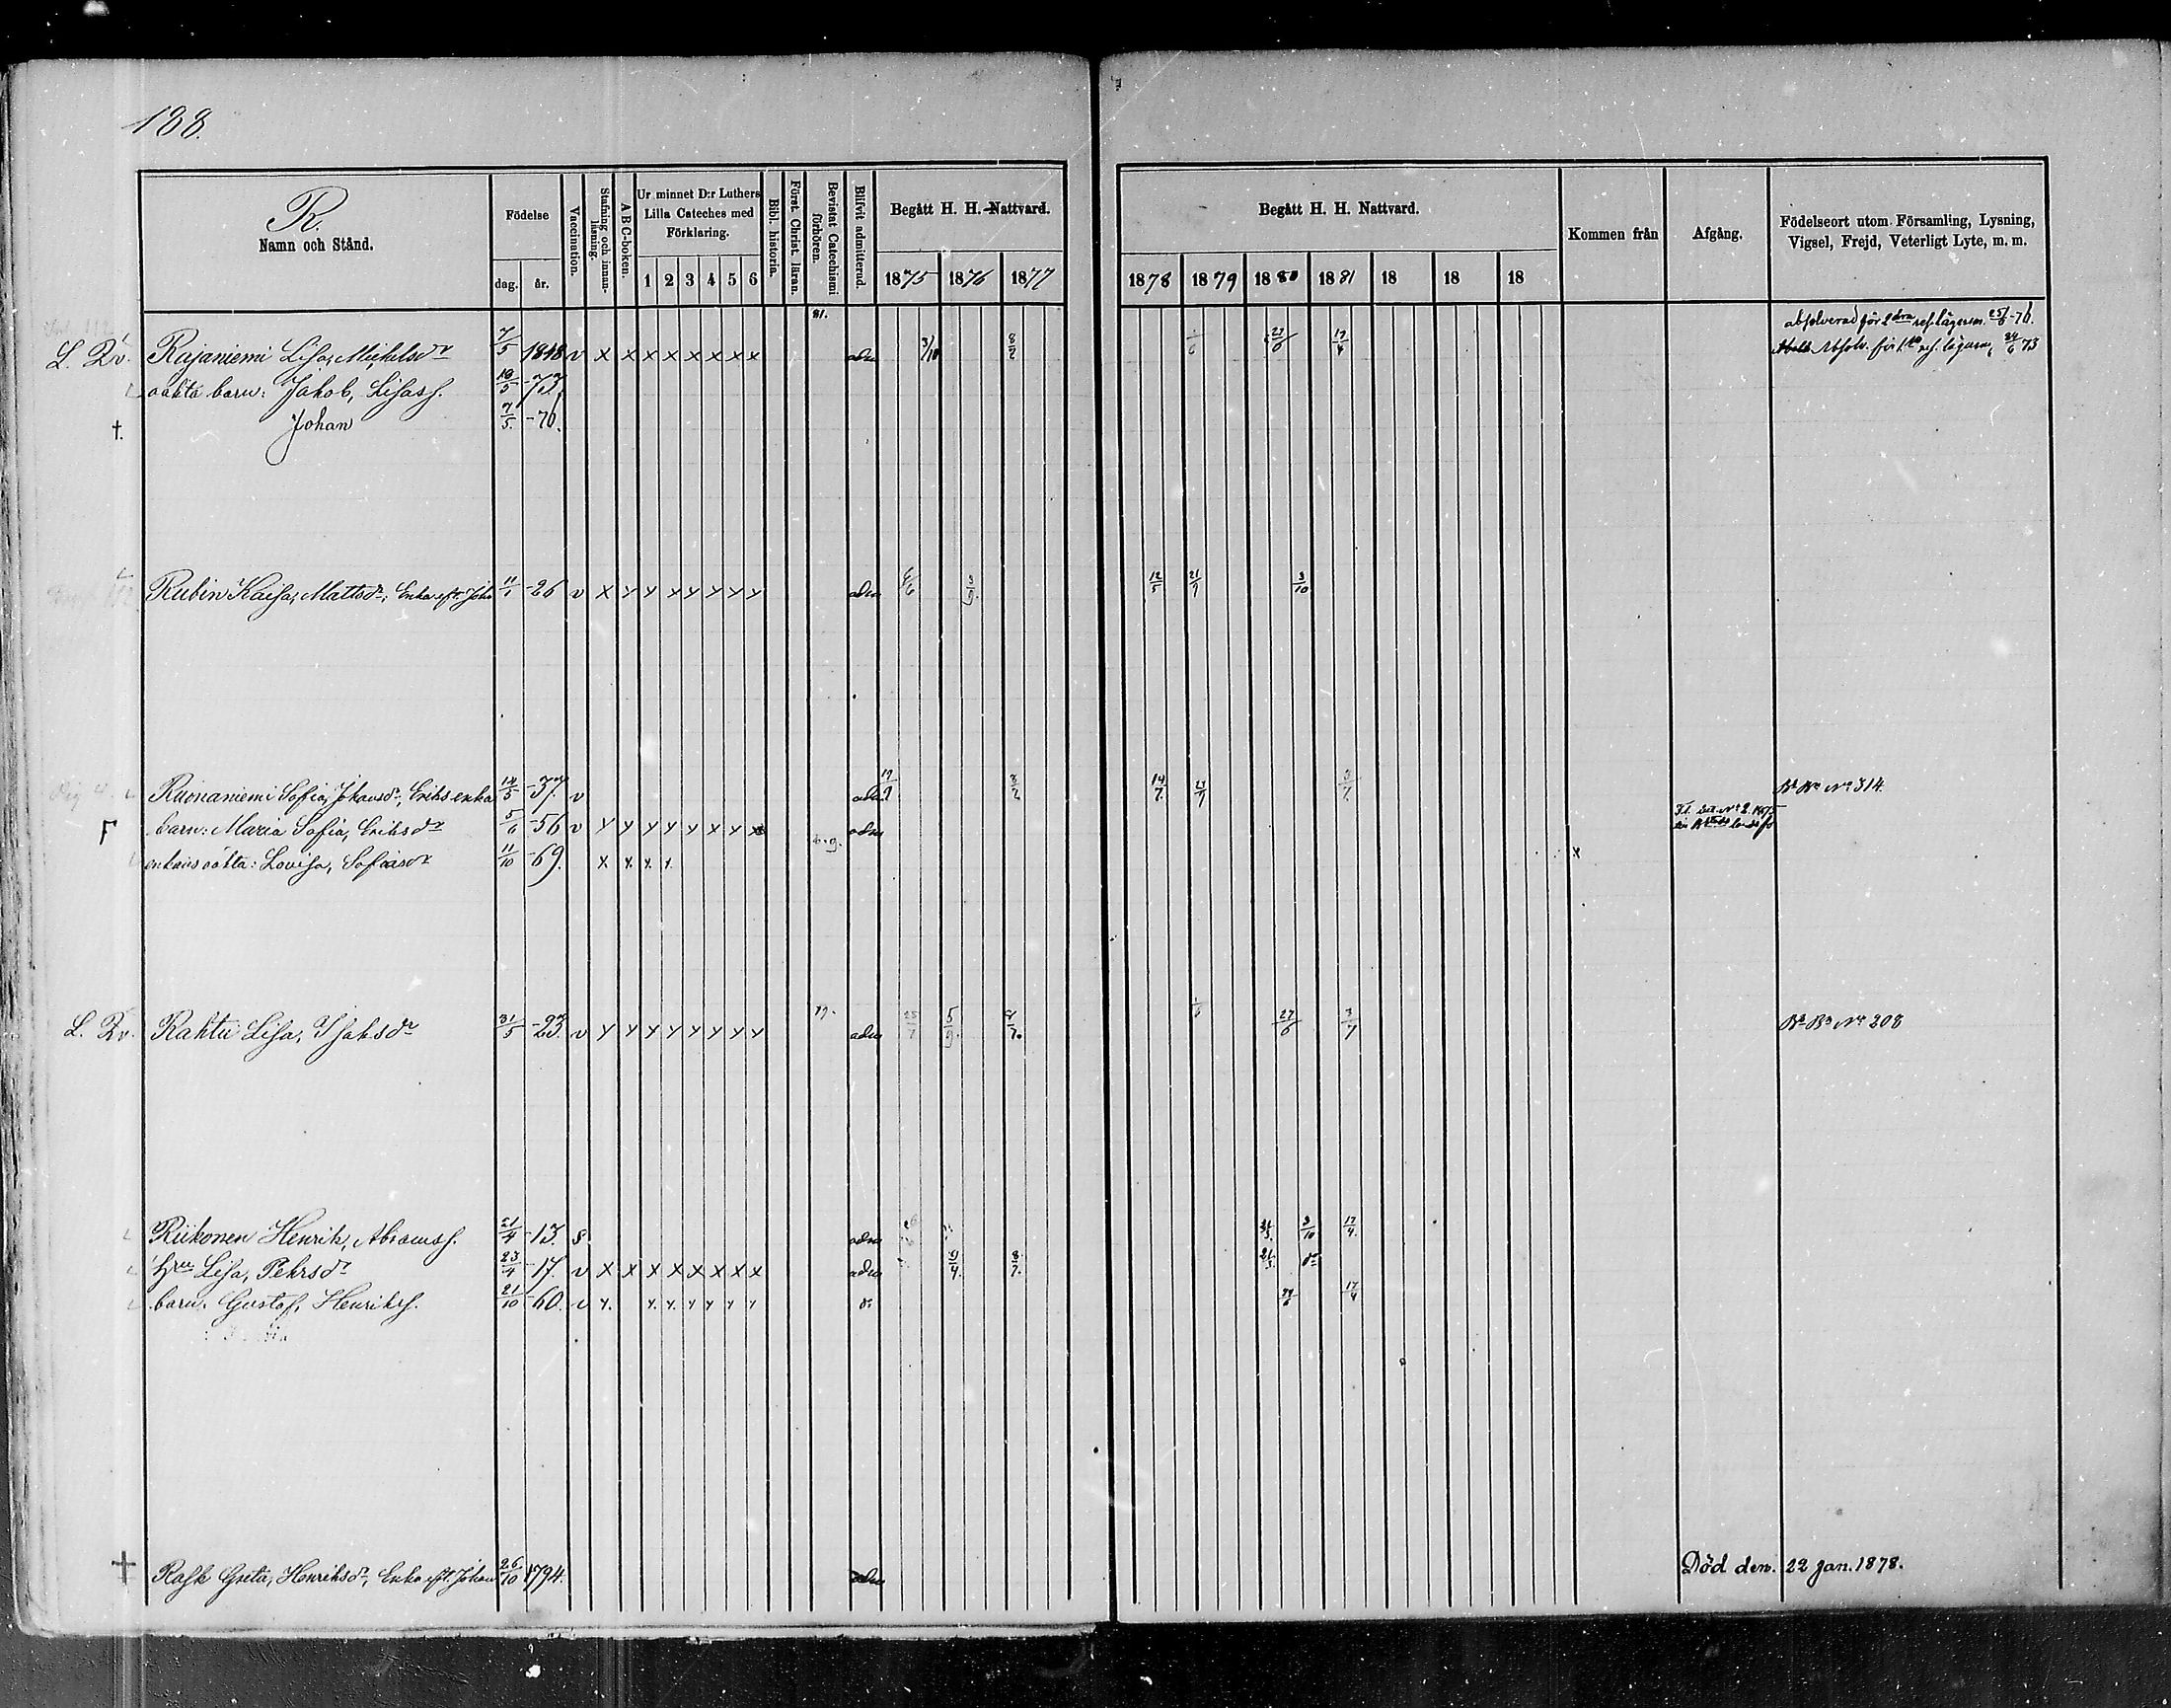 188.
R.
Namn och Stånd.
Födelse
dag.
år.
Vaccination.
Stafning och innanläsning.
A B C-boken.
Ur minnet D:r Luthers Lilla Cateches med Förklaring.
1 2 3 4 5 6
Bibl. historia.
Först. Christ. läran.
Bevistat Catechismi förhören.
Blifvit admitterud.
Begått H. H. Nattvard.
1875 1876 1877
Begått H. H. Nattvard.
1878 1879 1880 1881 18 18 18
Kommen från
Afgång.
Födelseort utom Församling, Lysning, Vigsel, Frejd, Veterligt Lyte, m. m.
81.
absolverad för 2dra resf. lägersm. 25/6 -76.
L. Rv. Rajaniemi Lisa, Michelsdr 7/5 1848 v x x x x x x x x adm 3/10 8/2 27/6 17/4 Absolv. för 1sta resf. lägersm. 24/6 73
oäkta barn: Jakob, Lisas. 10/5 -73
†. Johan 7/5 -76.
Rubin Kaisa, Mattsdr, Enka eft. Joh 11/1 -26 v x x x x x x x x adm 4/6 3/9. 12/5 21/9 3/10
Ruonaniemi Sofia, Johansdr, Eriks enka 14/5 -37. v adm 8/2 14/7. 3/7. Bk. Bn No 314.
F barn: Maria Sofia, Eriksdr 5/6 -56 v x x x x x x x x adm
enkans oäkta: Lovisa, Sofiasdr 11/10 -69. x x x x x
L. Rv. Rahtu Lisa, Isaksdr 31/5 -23. v x x x x x x x x adm 25/7 5/9. 8/7. 27/6 3/7 Bk. Bn No 208
Riikonen Henrik, Abramss. 21/4 -13. s adm 3/10 17/4.
Hru Lisa, Pehrsdr 23/4 -17. v x x x x x x x x adm 8/7.
barn: Gustaf, Henrikss. 21/10 -60. v x. x x x x x x 17/4
† Rask Greta, Henriksdr, Enka eft. Johan 26/10 1794. adm Död den 22 Jan. 1878.